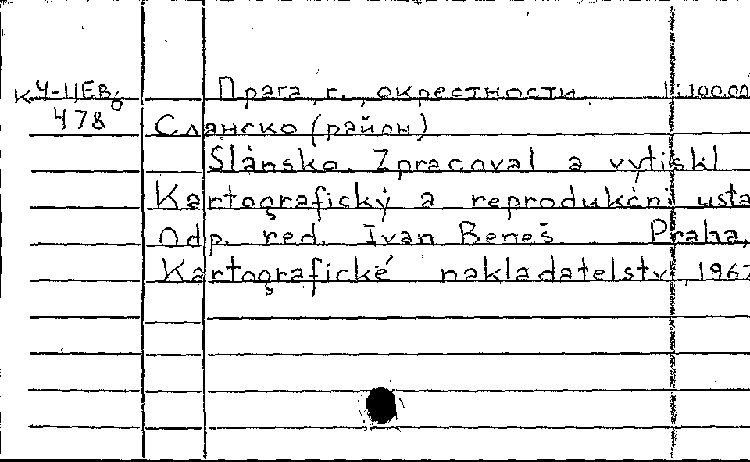 К 4-ЦЕв/6 Прага, г., окрестности. 1:100.00
478 Сланско (район)
Slánsko. Zpracoval a vytiskl
Kartografický a reprodukční usta
Odp. red. Ivan Beneš. Praha,
Kartografické nakladatelství, 1967